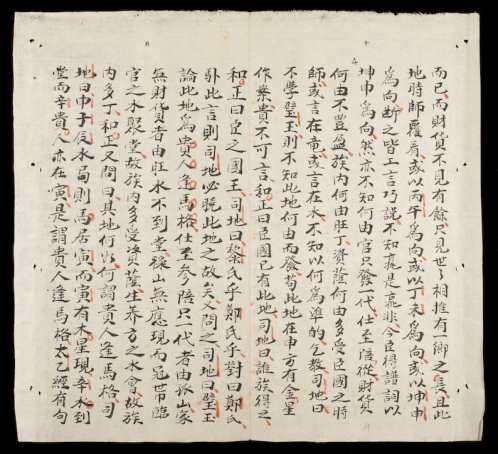 而已而財貨不見有餘只見世々相推有一鄉之長且此
地時師覆為或以丙午為向或以丁未為向或以坤申
為向断之皆工言巧說不知孰是孰非今臣得譜詞以
坤申為向然亦不知何由官只發一代仕至陪從財貨
何由不豊盈族內何由旺丁資蔭何由多受臣國之時
師或言在竜或言在水不知以何為準的乞教司地曰
不學璧玉則不知此地何由而發苟此地在申方有金星
作案貴不可言和正曰臣國已有此地司地曰誰族得之
和正曰臣之國王司地曰黎氏乎鄭氏乎對曰鄭氏
卦此言則司地必晓此地之故矣人問之司地曰璧玉
論此地為貴人逢馬格仕至參陪只一代者由孤山家
無財貨者由旺水不到堂祿山無應現而冠带臨
官之水聚堂故族內多受資蔭生养方之水會故族
內多丁和正又問曰其地何以謂貴人逢馬格司
地曰申子辰水局則馬居寅而寅有木星現辛水到
堂而辛貴人亦在寅是謂貴人逢馬格太乙經有句